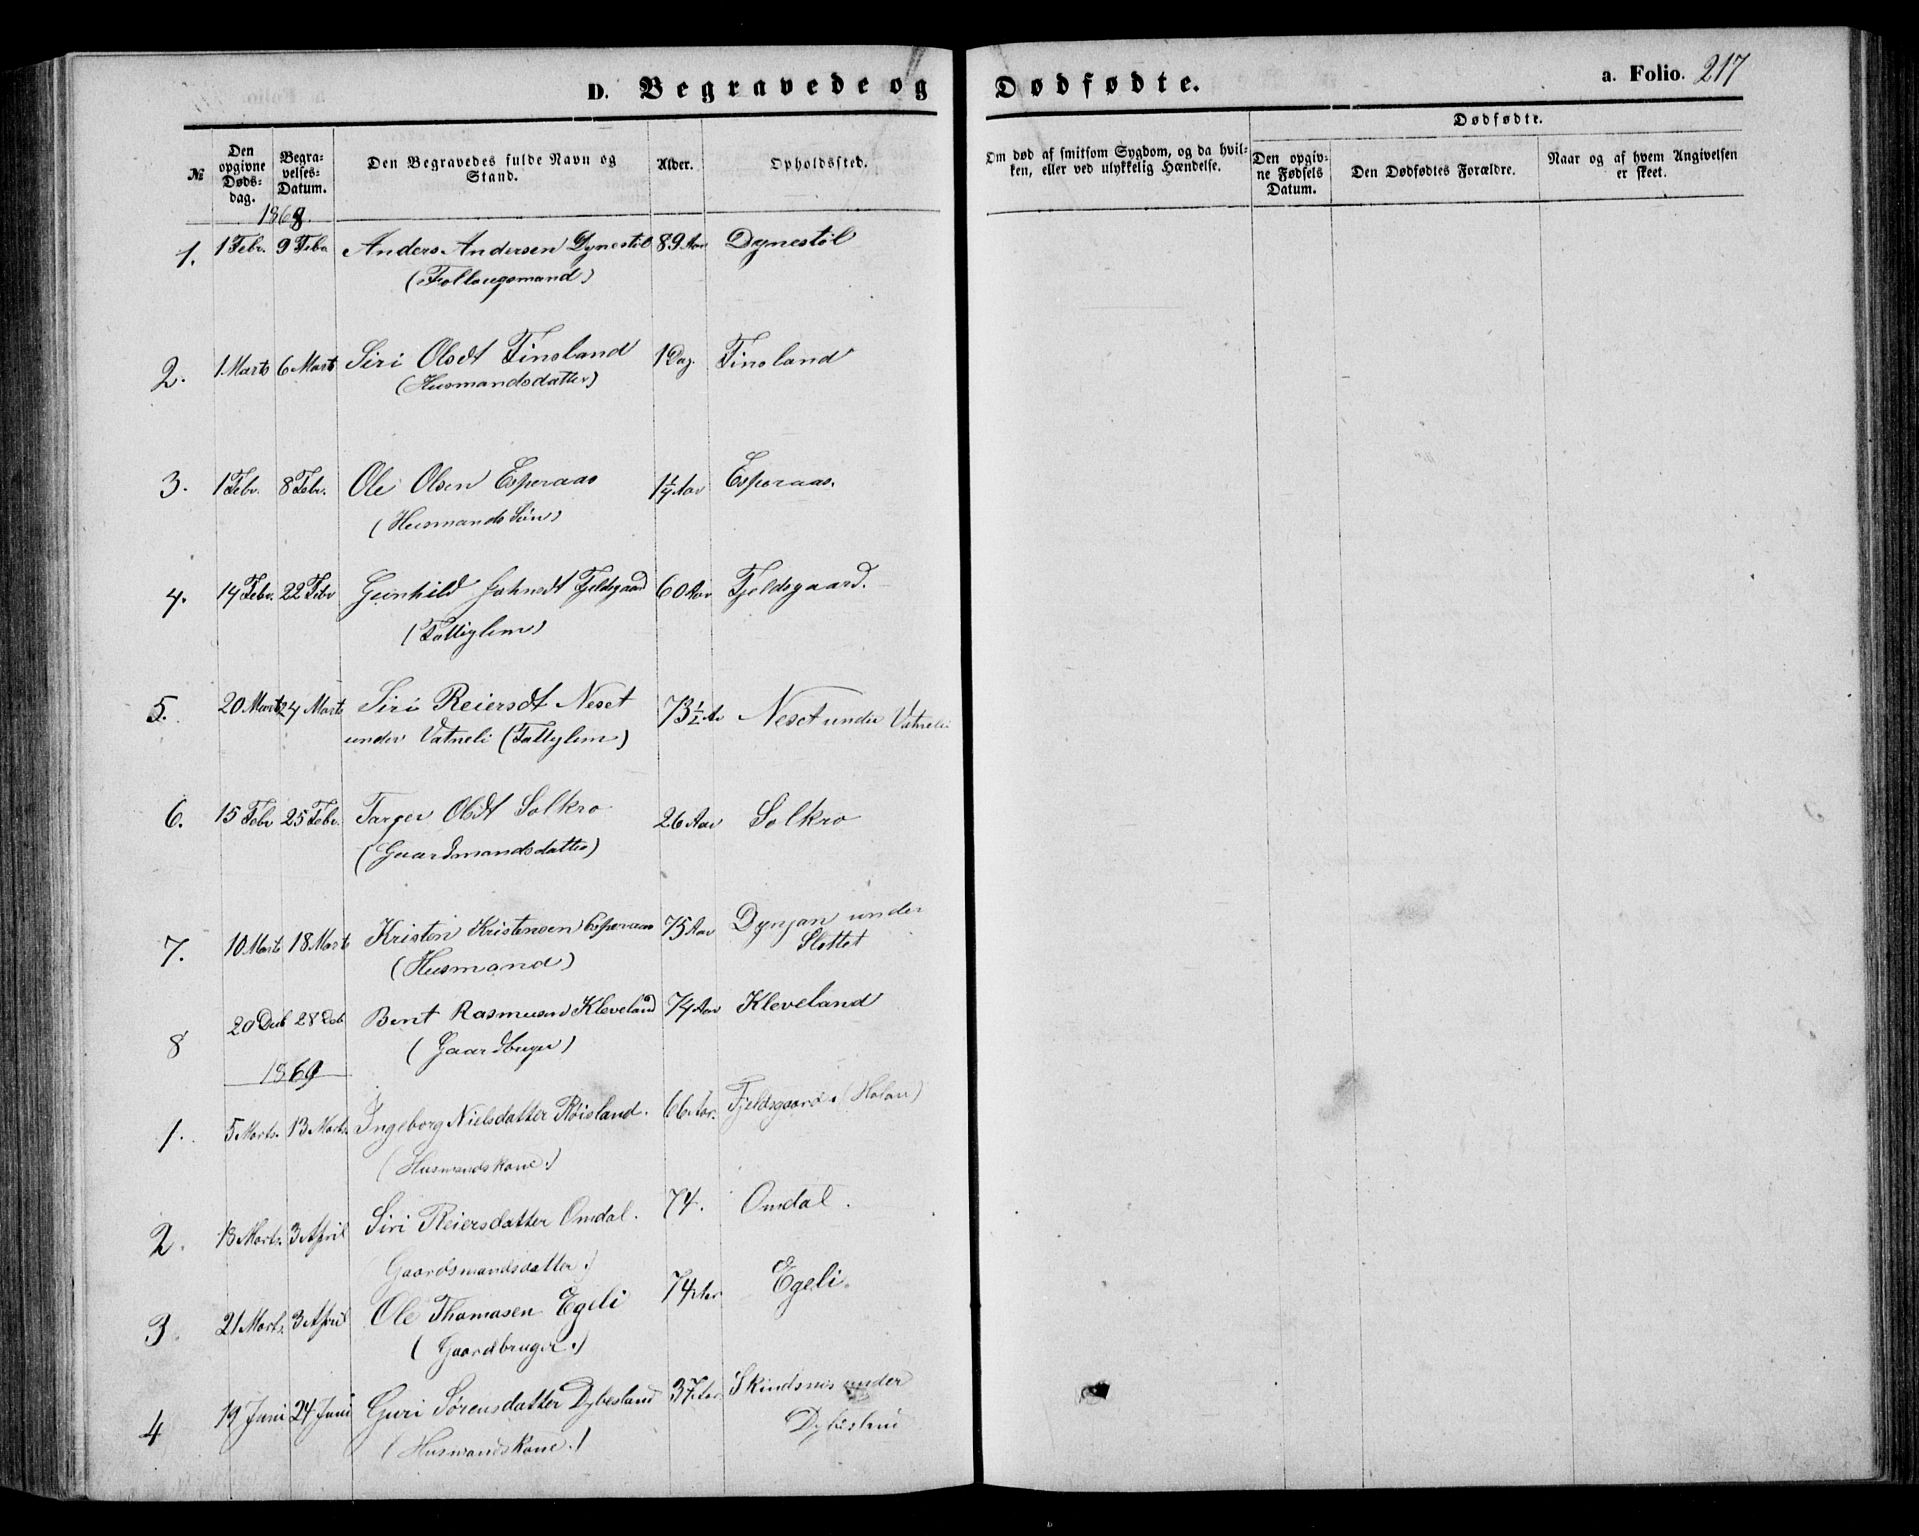 D. Begravede og Dødfødte.
a. Folio. 217
№
Den opgivne Døds-dag.
Begra-velses-Datum.
Den Begravedes fulde Navn og Stand.
Alder.
Opholdssted.
Om død af smitsom Sygdom, og da hvil-ken, eller ved ulykkelig Hændelse.
Dødfødte.
Den opgiv-ne Fødsels Datum.
Den Dødfødtes Forældre.
Naar og af hvem Angivelsen er skeet.
1868.
1. 1 Febr. 9 Febr Anders Andersen Dynestöl 89 Aar Dynestöl
(Follaugsmand)
2. 1 Marts 6 Marts Siri Olsdt Finsland 1 Dag. Finsland
(Husmandsdatter)
3. 1 Febr. 8 Febr. Ole Olsen Esperaas 1¼ Aar Esperaas.
(Husmands Sön)
4. 14 Febr. 22 Febr Gunhild Johnsdt Fjeldsgaard 60 Aar Fjeldsgaard.
(Fattiglem)
5. 20 Marts 24 Marts Siri Reiersdt Neset 73½ Ar Neset under Vatneli
under Vatneli (Fattiglem)
6. 15 Febr 25 Febr. Targer Olsdt Solkro 26 Aar Solkro
(Gaardmandsdatter)
7. 10 Marts 18 Marts Kristen Kristensen Esperaas 75 Aar Dynjan under
Slottet
(Husmand)
8 20 Deb 28 Deb Bent Rasmusen Kleveland 74 Aar Kleveland
(Gaardbruger)
1869
1. 5 Marts. 13 Marts. Ingeborg Nielsdatter Röisland. 66 Aar. Fjeldsgaard (Holan)
(Husmandskone.)
2. 13 Marts. 3 April Siri Reiersdatter Omdal. 74. Omdal.
Gaardsmandsdatter.)
3. 21 Marts. 3 April Ole Thomasen Egeli 74 Aar Egeli.
(Gaardbruger.)
4 19 Juni 24 Juni Guri Sørensdatter Dybesland 37 Aar Skindsnes under
(Husmandskone.)